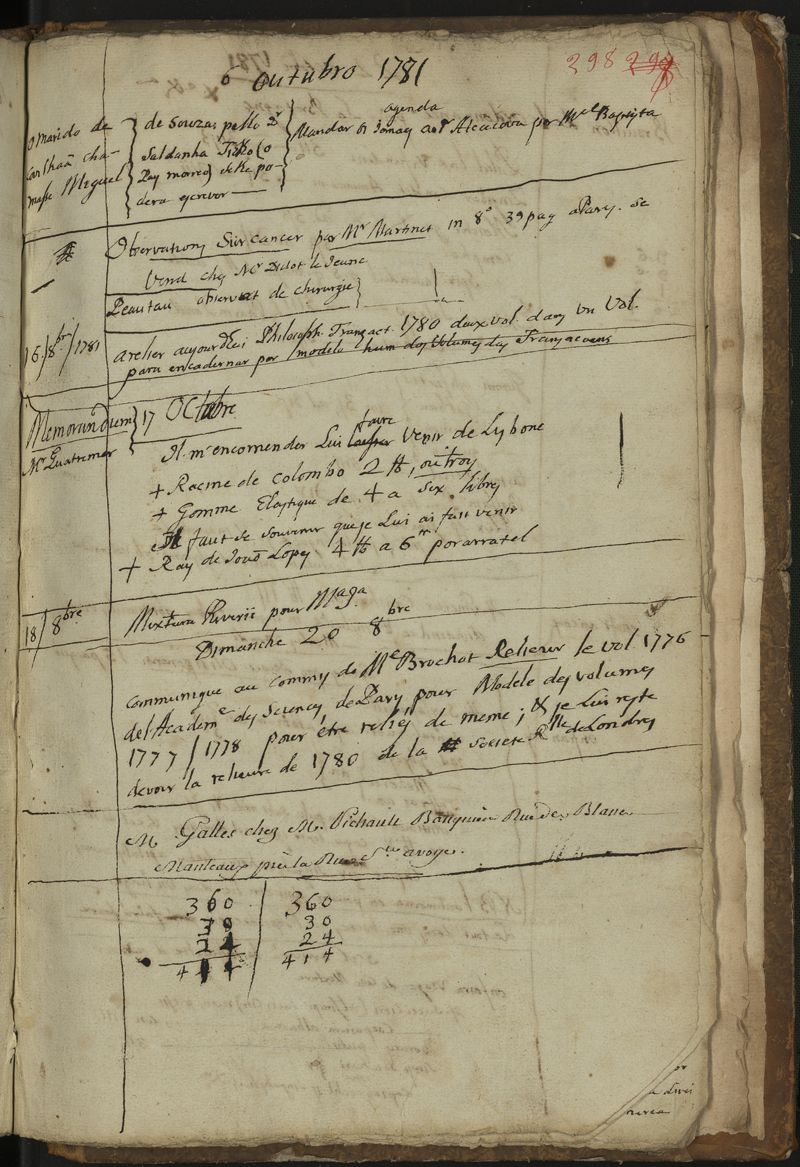 398
6 outubro 1781
O marido de
Carlhaã cha-
masse Miguel
de Souza, pello Dr
Saldanha
Pay morreo
dera escrever
agenda
Mandar os a Dr Alcacova por Mel Baptista
Observations sur cancer par Mr Martinet in 8° 39 pag a Pary. se
vend chez Mr Didot le Jeune
Peautau observat de chirurgie
16/8bre/1781
a relier aujourdui Philosoph. Transact. 1780 deux vol dans un Vol.
para encadernar por modelo hum dos Volumes das Transacoens
Memorandum
Mr Quatremer
17 Octobre
Il m'encomender Lui faire venir de Lybone
+ Racine de Colombo 2 ℔, ou troy
+ Gomme Elastique de 4 a six libres
Il faut se souvenir que je Lui ai fait venir
+ Ray de Joaõ Lopez 4 ℔ a 6 por arratel
18/8bre
Mixtura Riverii pour Maga
Dimanche 20 8bre
Communique au commy de Me Brochot Relieur le vol 1776
de l'Academe des Sciences de Pary pour Modele des volumes
1777/1778 pour être reliés de meme; & je Lui reste
devoir la relieure de 1780 de la Societe Rlle de Londres
M. Galles chez M. Pichault Banquier Rue des Blancs
Manteaux près la Rue Ste avoye.
360 360
30 30
24 24
414 414